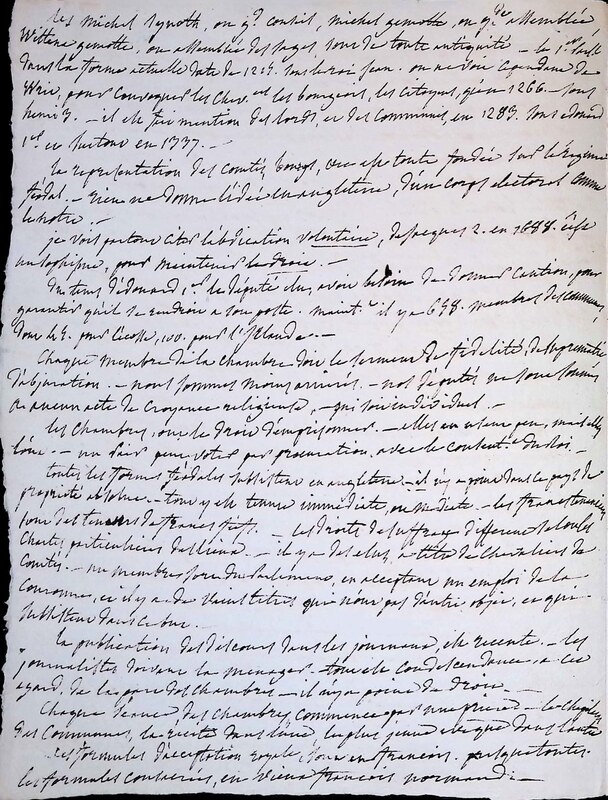 les michel synoth, ou gd conseil, michel gemotte, ou gde assemblée
Wittena gemotte, ou assemblée des sages sont de toute antiquité – le 1er
dans la forme actuelle date de 1215. sous le roi jean. on ne voit cependant de
Writ, pour convoquer les Chev. et les bourgeois, les citoyens, qu'en 1266. – sous
henri 3. – il est fait mention des lords, et des communes, en 1283. sous edouard
1er et surtout en 1337. –
la représentation des comtés, bourgs, &c est toute fondée sur le régime
féodal. – rien ne donne l'idée en angleterre, d'un corps électoral comme
le notre. –
je vois partout citer l'abdication volontaire, de jacques 2. en 1688. c'est
un sophisme, pour maintenir le droit. –
du tems d'édouard 1er le député élu, avoit besoin de donner caution, pour
garantir qu'il se rendroit à son poste. maint.t il y a 658. membres des communes,
dont 45. pour l'écosse, 100. pour l'Irlande. –
Chaque membre de la chambre doit le serment de fidélité, de suprématie
d'abjuration. – nous sommes moins arriérés. – nos députés ne sont tenus
à aucun acte de croyance religieuse, – qui soit individuel. –
les chambres, ont le droit d'emprisonner. – elles en usent peu, mais elles
l'ont. – un pair peut voter par procuration, avec le consent.t du Roi –
toutes les formes féodales subsistent en angleterre. – il n'y a point dans ce pays de
propriété absolue. – tout y est tenure immédiate, ou médiate. – les francs tenanciers
sont des tenans de francs fiefs. – les droits de suffrage different selon les
Chartes particulieres des lieux. – il y a des élus, à titre de Chevaliers de
Comtés. – un membre sort du Parlement, en acceptant un emploi de la
couronne, et il y a de vains titres qui n'ont pas d'autre objet, et qui
subsistent dans ce but.
la publication des discours dans les journaux, est récente. – les
journalistes doivent la ménager. tout est condescendance, à cet
égard, de la part des chambres – il n'y a point de droit. –
Chaque séance, des chambres, commence par une priere – le Chapelain
des Communes, la récite dans l'une, le plus jeune évêque dans l'autre
les formules d'acceptation royale, sont en françois. presque toutes
les formules conservées, en vieux françois normand. –